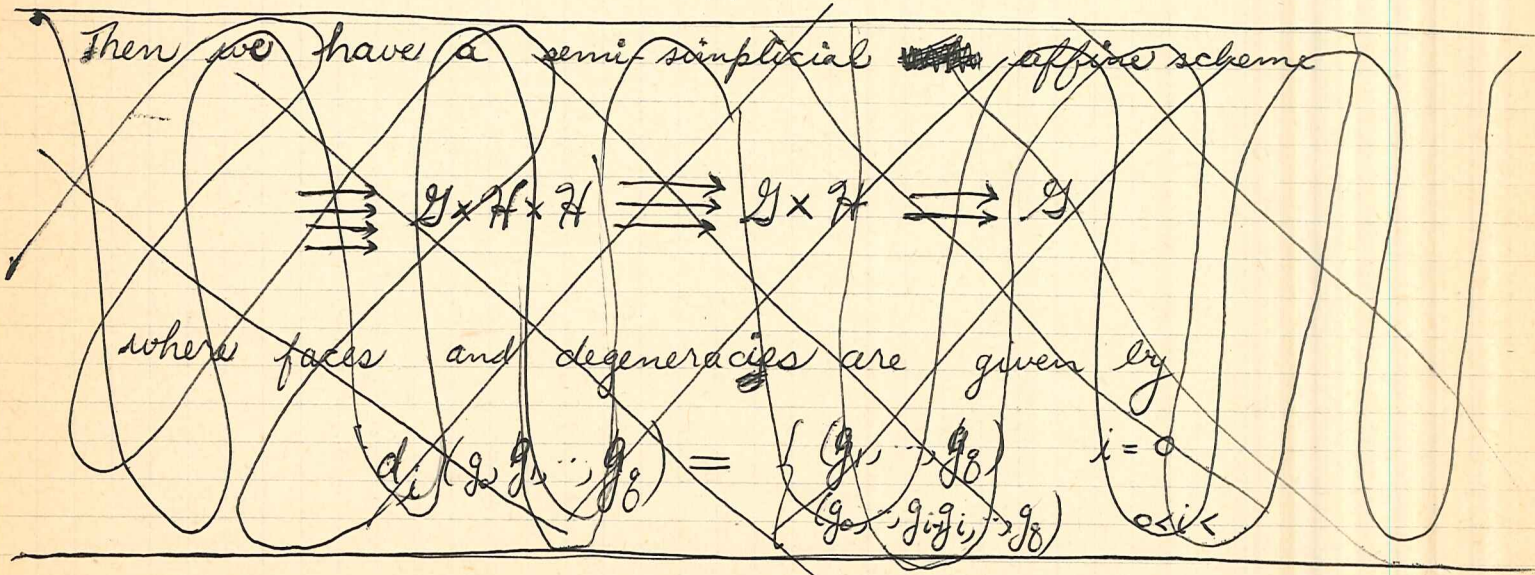 Then we have a semi-simplicial affine scheme
⇶ 𝒢 × ℋ × ℋ ⇶ 𝒢 × ℋ ⇉ 𝒢
where faces and degeneracies are given by
d_i (g_0, g_1, .., g_q) = { (g_1, .., g_q) i = 0
(g_0, .., g_{i-1}g_i, .., g_q) 0 < i <